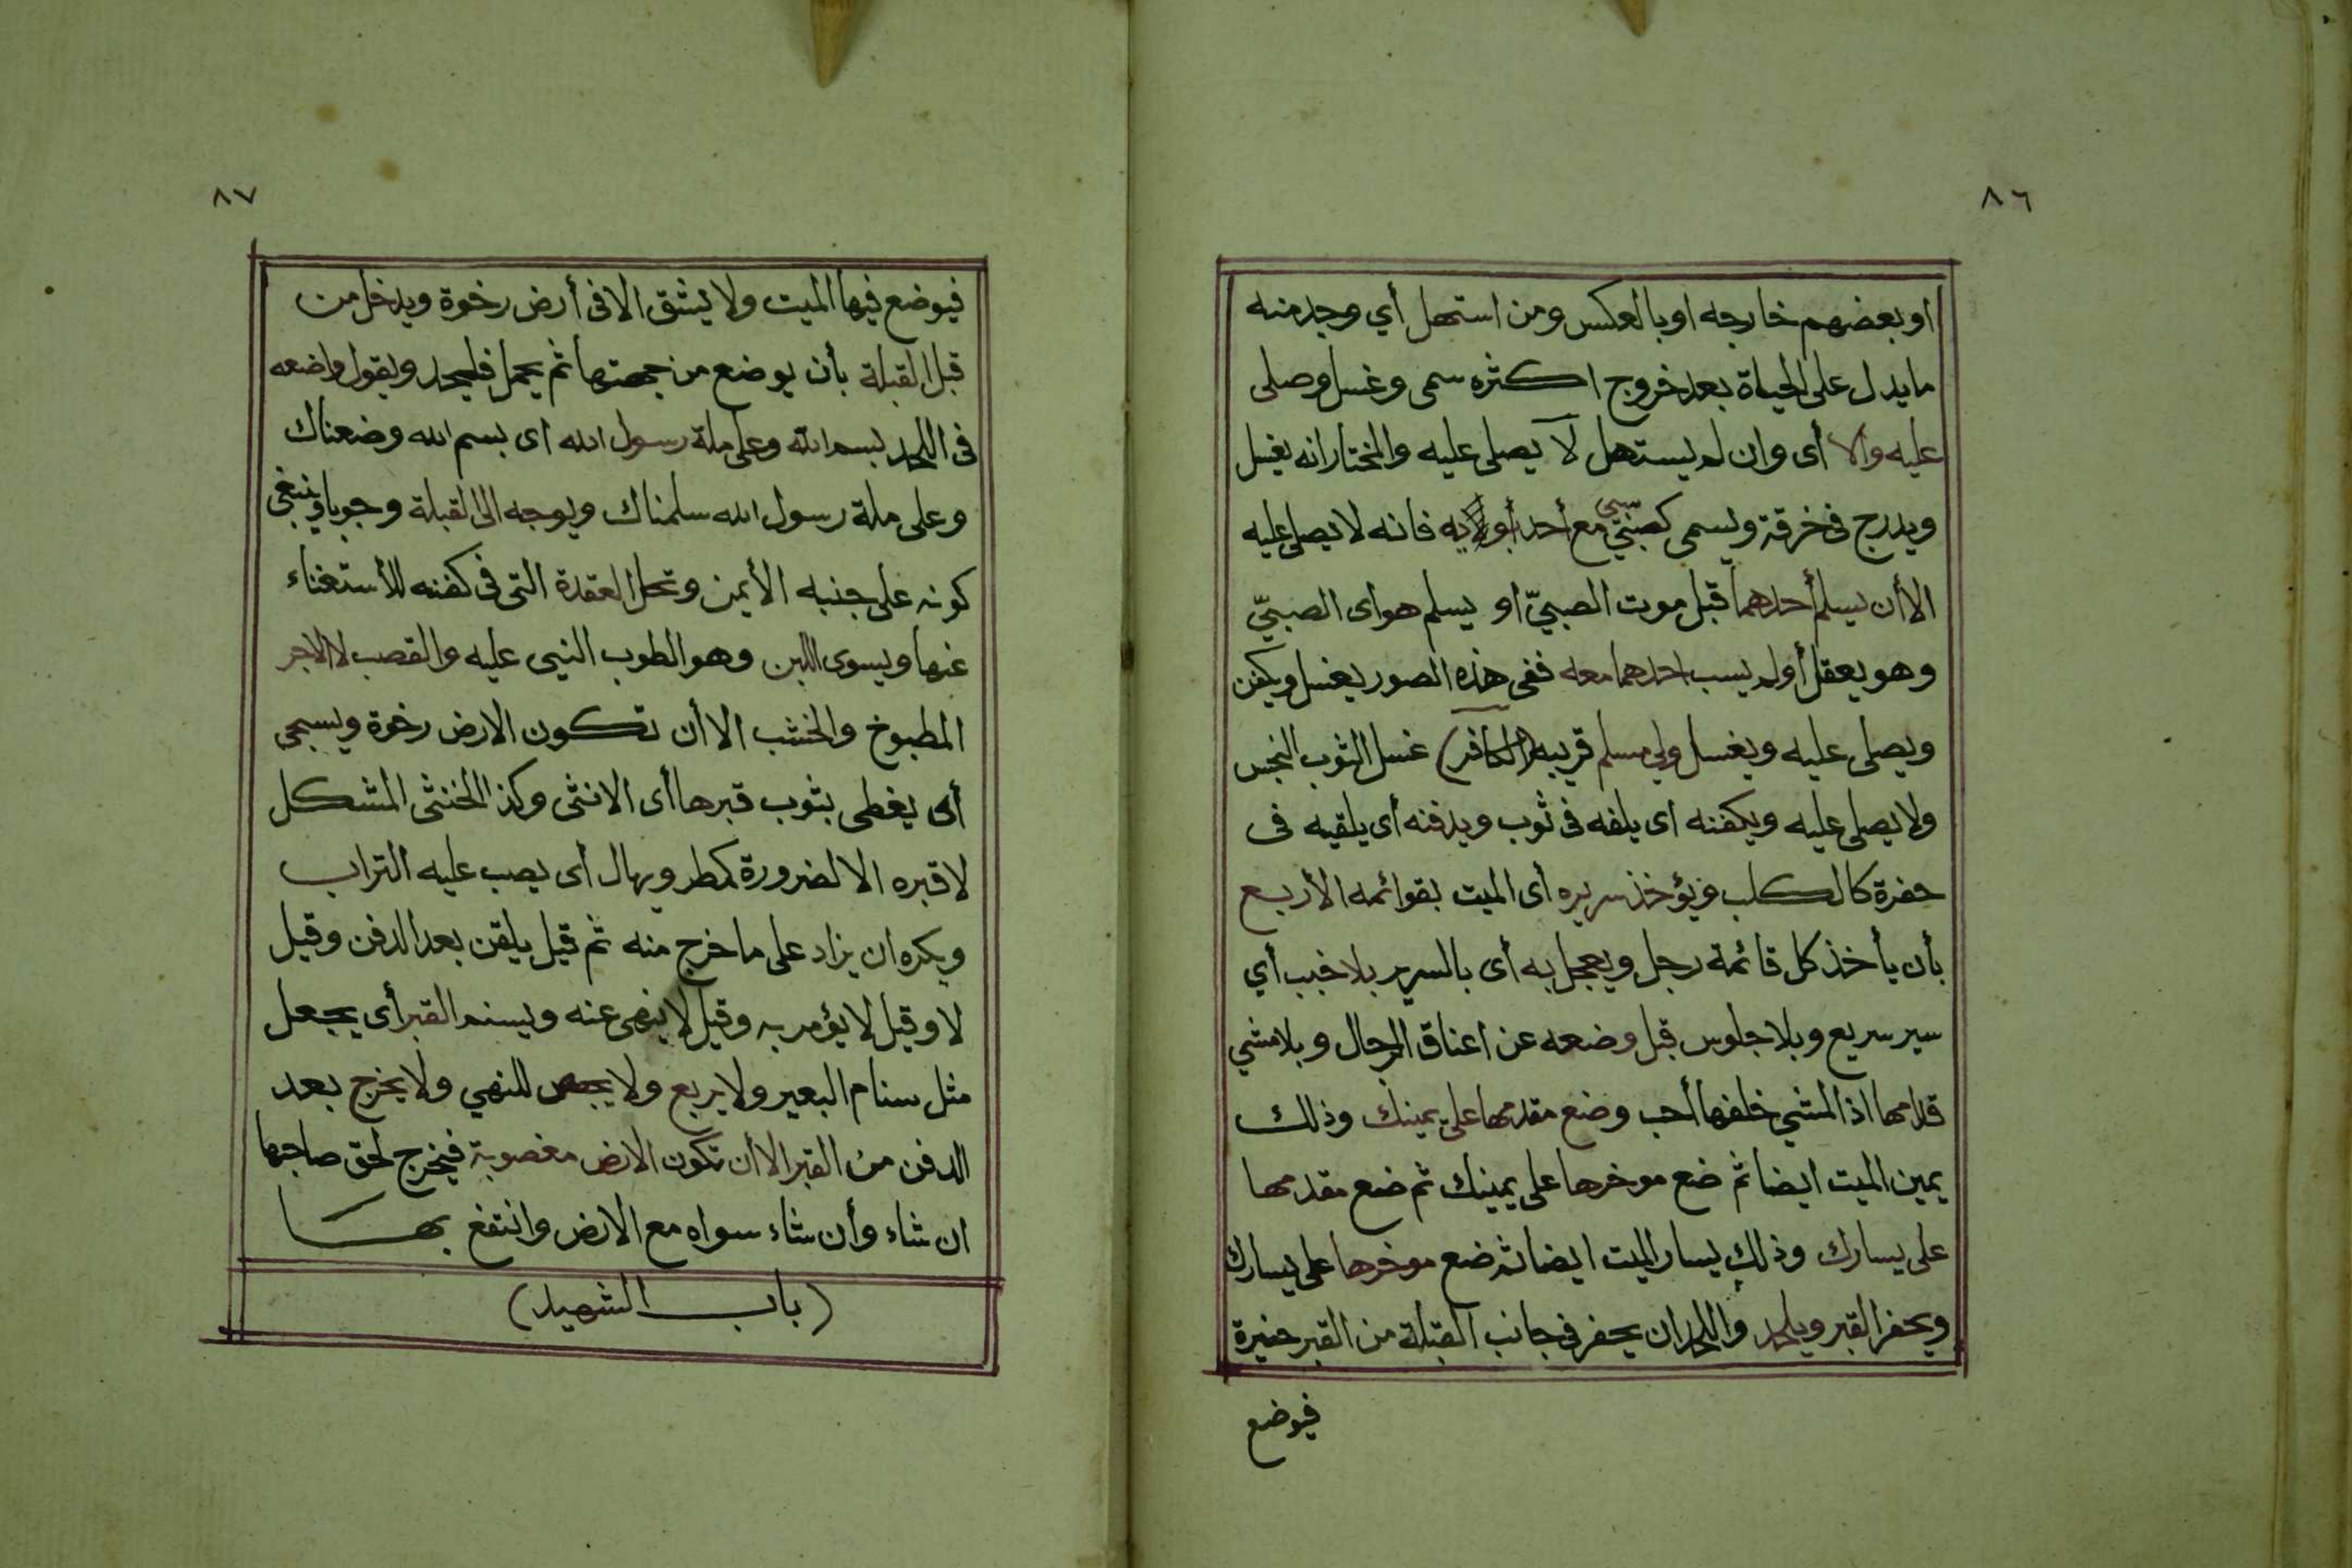 ٨٦
او بعضهم خارجه او بالعكس ومن استهل أي وجد منه
ما يدل على الحياة بعد خروج اكثره سمى وغسل وصلى
عليه والا أى وان لم يستهل لا يصلى عليه والمختار انه يغسل
ويدرج فى خرقة ويسمى كصبيّ سبى مع أحد أبويه فانه لا يصلى عليه
الا أن يسلم أحدهما قبل موت الصبيّ او يسلم هو اى الصبيّ
وهو يعقل أو لم يسب احدهما معه ففى هذه الصور يغسل ويكفن
ويصلى عليه ويغسل ولي مسلم قريبه (الكافر) غسل الثوب النجس
ولا يصلى عليه ويكفنه اى يلفه فى ثوب ويدفنه أى يلقيه فى
حفرة كالكلب ويؤخذ سريره أى الميت بقوائمه الأربع
بأن يأخذ كل قائمة رجل ويعجل به أى بالسرير بلا خبب أي
سير سريع وبلا جلوس قبل وضعه عن اعناق الرجال وبلا مشي
قدامها اذ المشي خلفها أحب وضع مقدمها على يمينك وذلك
يمين الميت ايضا ثم ضع موخرها على يمينك ثم ضع مقدمها
على يسارك وذلك يسار الميت ايضا ثم ضع موخرها على يسارك
ويحفر القبر ويلحد واللحد ان يحفر فى جانب القبلة من القبر حفيرة
فيوضع
٨٧
فيوضع فيها الميت ولا يشق الا فى أرض رخوة ويدخل من
قبل القبلة بأن يوضع من جهتها ثم يحمل فليحد ويقول واضعه
فى اللحد بسم الله وعلى ملة رسول الله اى بسم الله وضعناك
وعلى ملة رسول الله سلمناك ويوجه الى القبلة وجوبا وينبغى
كونه على جنبه الأيمن وتحل العقدة التى فى كفنه للأستغناء
عنها ويسوى اللبن وهو الطوب النيى عليه والقصب لا الاجر
المطبوخ والخشب الا أن تكون الارض رخوة ويسجى
أى يغطى بثوب قبرها أى الانثى وكذا الخنثى المشكل
لا قبره الا لضرورة كمطر ويهال اى يصب عليه التراب
ويكره ان يزاد على ما خرج منه ثم قيل يلقن بعد الدفن وقيل
لا وقيل لا يؤمر به وقيل لا ينهى عنه ويسنم القبر أى يجعل
مثل سنام البعير ولا يربع ولا يجصص للنهي ولا يخرج بعد
الدفن من القبر الا أن تكون الارض مغصوبة فيخرج لحق صاحبها
ان شاء وأن شاء سواه مع الارض وانتفع بها
(باب الشهيد)